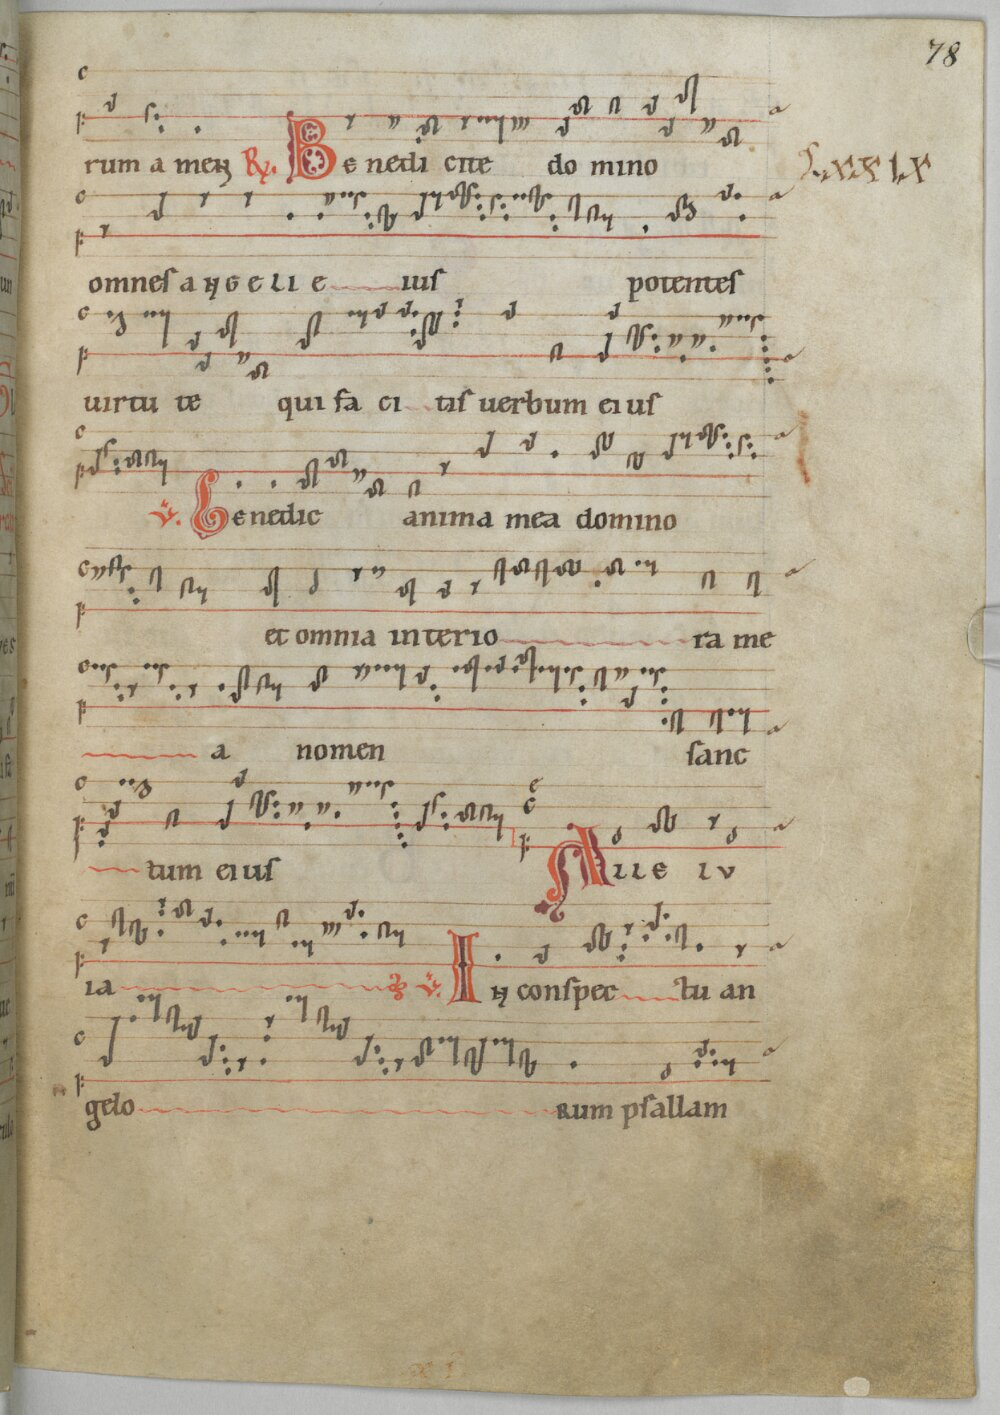 78
rum a men R. Benedicite domino
LXXXIX
omnes angeli eius potentes
uirtute qui facitis uerbum eius
V. Benedic anima mea domino
et omnia interiora me
a nomen sanc
tum eius Alle lu
ia V. In conspectu an
gelorum psallam